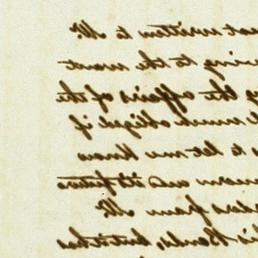 not written to Mr.
wing to the want
g the affairs of the
much obliged if
to let me know
and its future
from Mr.
his Bonds, but it has